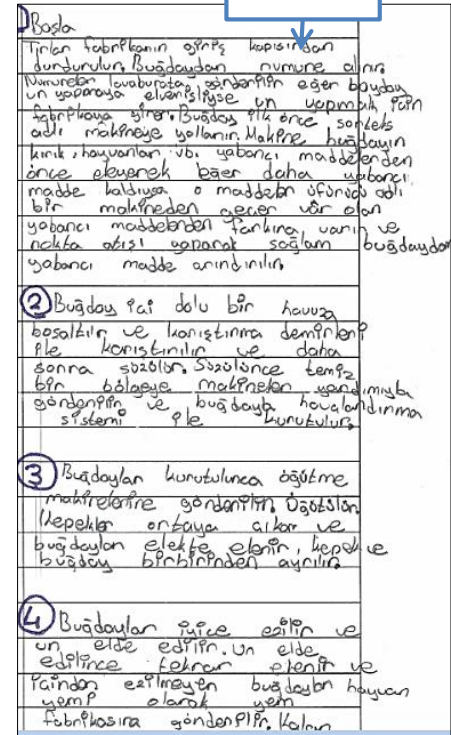 ① Başla
Tırlar fabrikanın giriş kapısından
durdurulur. Buğdaydan numune alınır.
Numuneler lavaburata gönderilir eğer buyday
un yapmaya elverişliyse un yapmak için
fabrikaya girer. Buğday ilk önce sorteks
adlı makineye yollanır. Makine buğdayın
kırık, hayvanlar vb. yabancı maddelerden
önce eleyerek eğer daha yabancı
madde kaldıysa o maddeler üfürücü adlı
bir makineden geçer var olan
yabancı maddelerden farkına varır ve
nokta atışı yaparak sağlam buğdaydan
yabancı madde arındırılır.
② Buğday içi dolu bir havuza
boşaltılır ve karıştırma demirleri
ile karıştırılır ve daha
sonra süzülür. Süzülünce temiz
bir bölgeye makineler yardımıyla
gönderilir ve buğdayla havalandırma
sistemi ile kurutulur.
③ Buğdaylar kurutulunca öğütme
makinelerine gönderilir. Öğütülür
kepekler ortaya çıkar ve
buğdaylar elekte elenir, kepek ve
buğday birbirinden ayrılır.
④ Buğdaylar iyice ezilir ve
un elde edilir. Un elde
edilince tekrar elenir ve
içinden ezilmeyen buğdaylar hayvan
yemi olarak yem
fabrikasına gönderilir. Kalan